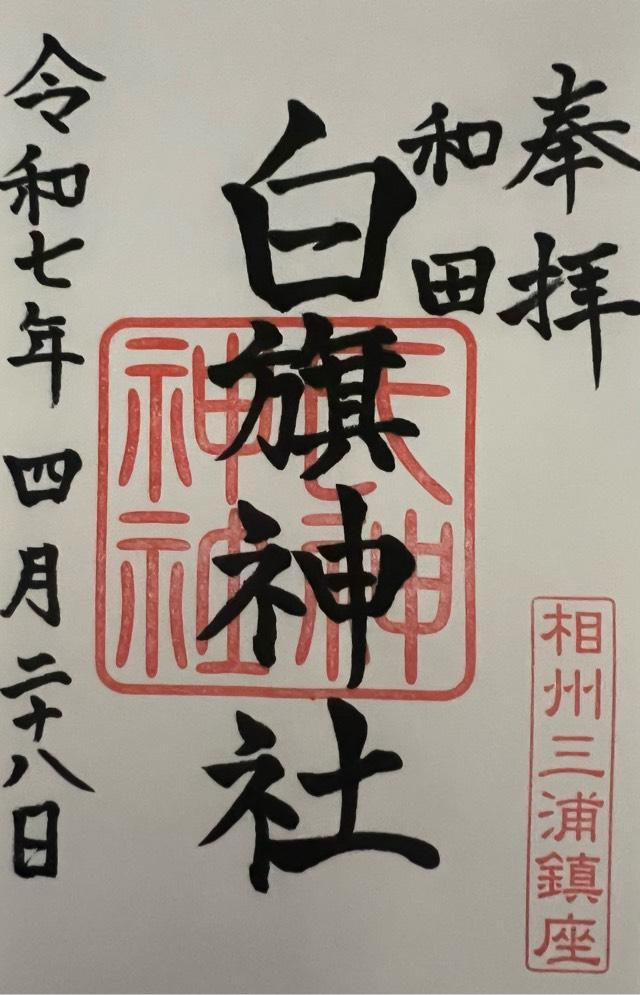 奉拝
相州三浦鎮座
和田
白旗神社
氏神
神社
令和七年四月二十八日